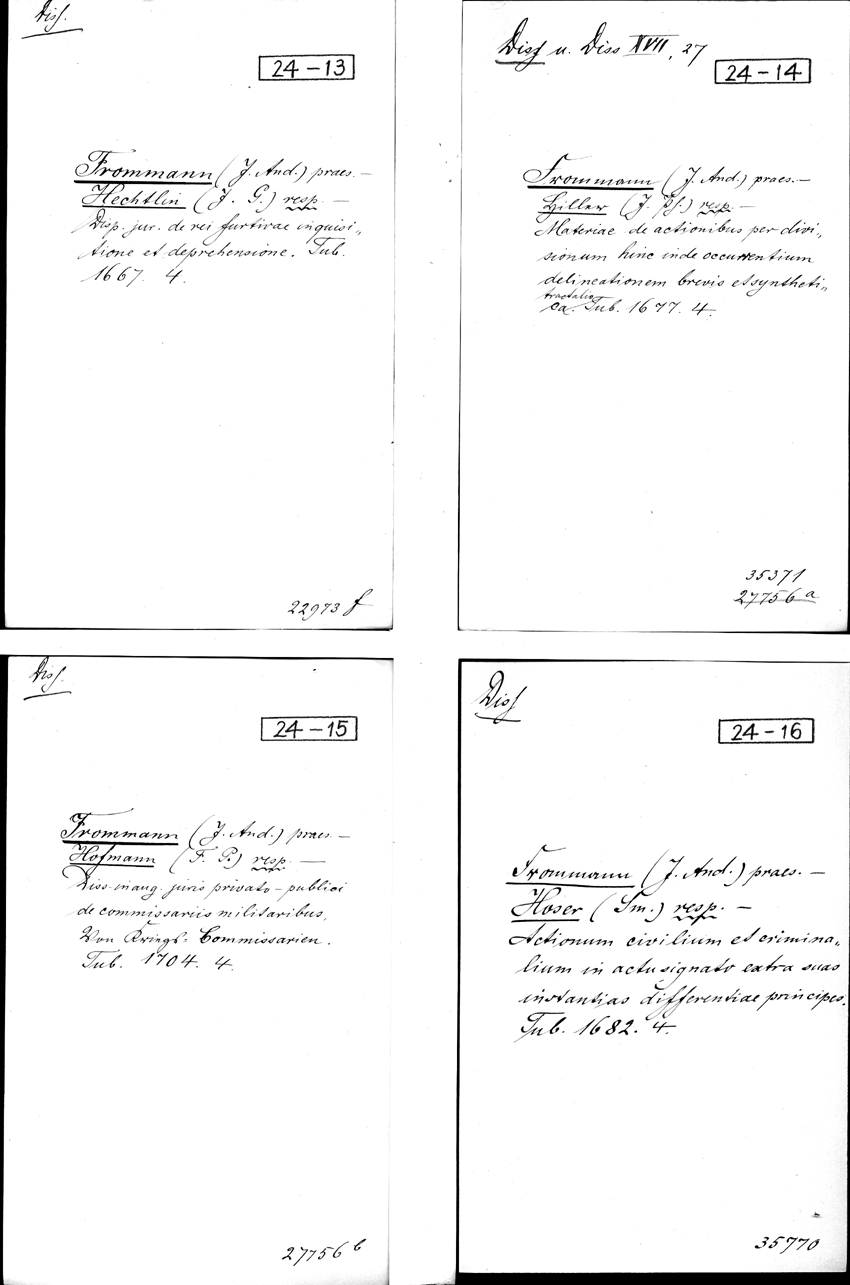 Diss.
24-13
Frommann (J. And.) praes. —
Hechtlin (J. G.) resp. —
Disp. jur. de rei furtivae inquisi„
tione et deprehensione. Tub.
1667. 4.
22973 f
Diss u. Diss XVII, 27
24-14
Frommann (J. And.) praes. —
Hiller (J. Ph.) resp. —
Materiae de actionibus per divi„
sionum hinc inde occurrentium
delineationem brevis et syntheti„
tractatio
ca. Tub. 1677. 4.
35371
27756 a
Diss.
24-15
Frommann (J. And.) praes. —
Hofmann (F. P.) resp. —
Diss. inaug. juris privato-publici
de commissariis militaribus,
Von Kriegs-Commissarien.
Tub. 1704. 4.
27756 b
Diss
24-16
Frommann (J. And.) praes. —
Hoser (Sm.) resp. —
Actionum civilium et crimina„
lium in actu signato extra suas
instantias differentiae principes.
Tub. 1682. 4.
35770